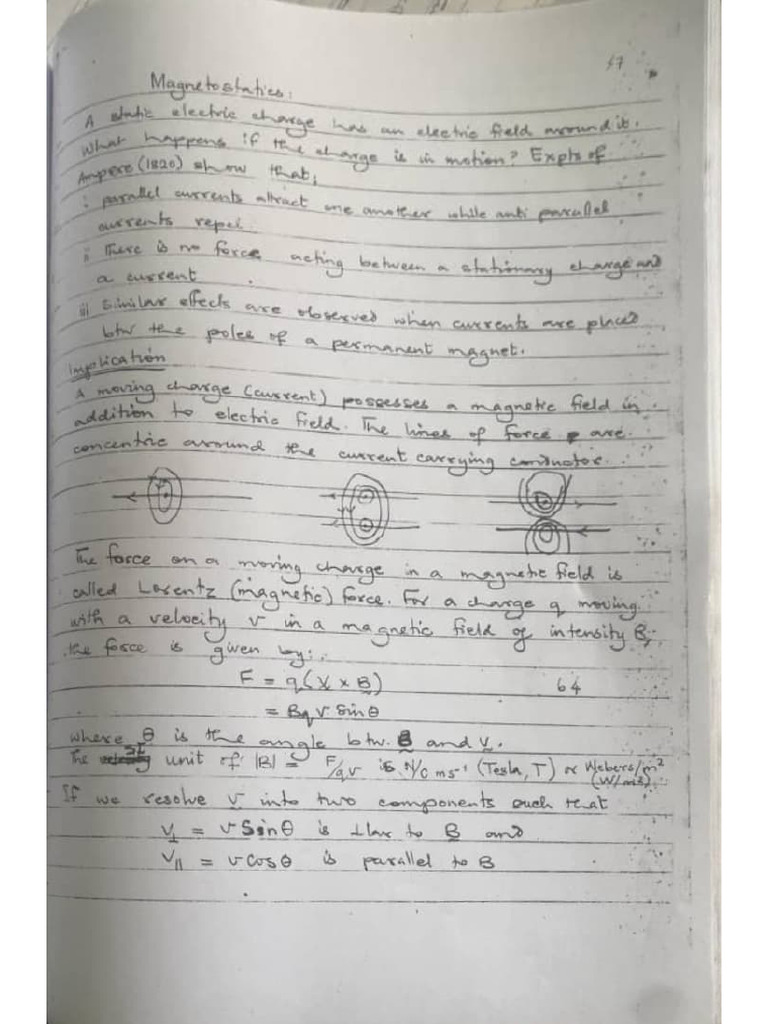 57
Magnetostatics:
A static electric charge has an electric field around it.
What happens if the charge is in motion? Expts of
Ampere (1820) show that,
i parallel currents attract one another while anti parallel
currents repel.
ii There is no force acting between a stationary charge and
a current.
iii Similar effects are observed when currents are placed
btw the poles of a permanent magnet.
Implication
A moving charge (current) possesses a magnetic field in
addition to electric field. The lines of force are
concentric around the current carrying conductor.
The force on a moving charge in a magnetic field is
called Lorentz (magnetic) force. For a charge q moving
with a velocity v in a magnetic field of intensity B,
the force is given by:
F = q(V × B) 64
= Bqv Sinθ
where θ is the angle btw. B and v.
The SI unit of |B| = F/qv is N/C ms⁻¹ (Tesla, T) or Webers/m²
(W/m²)
If we resolve v into two components such that
V⊥ = v Sinθ is ⊥lar to B and
V∥ = v cosθ is parallel to B